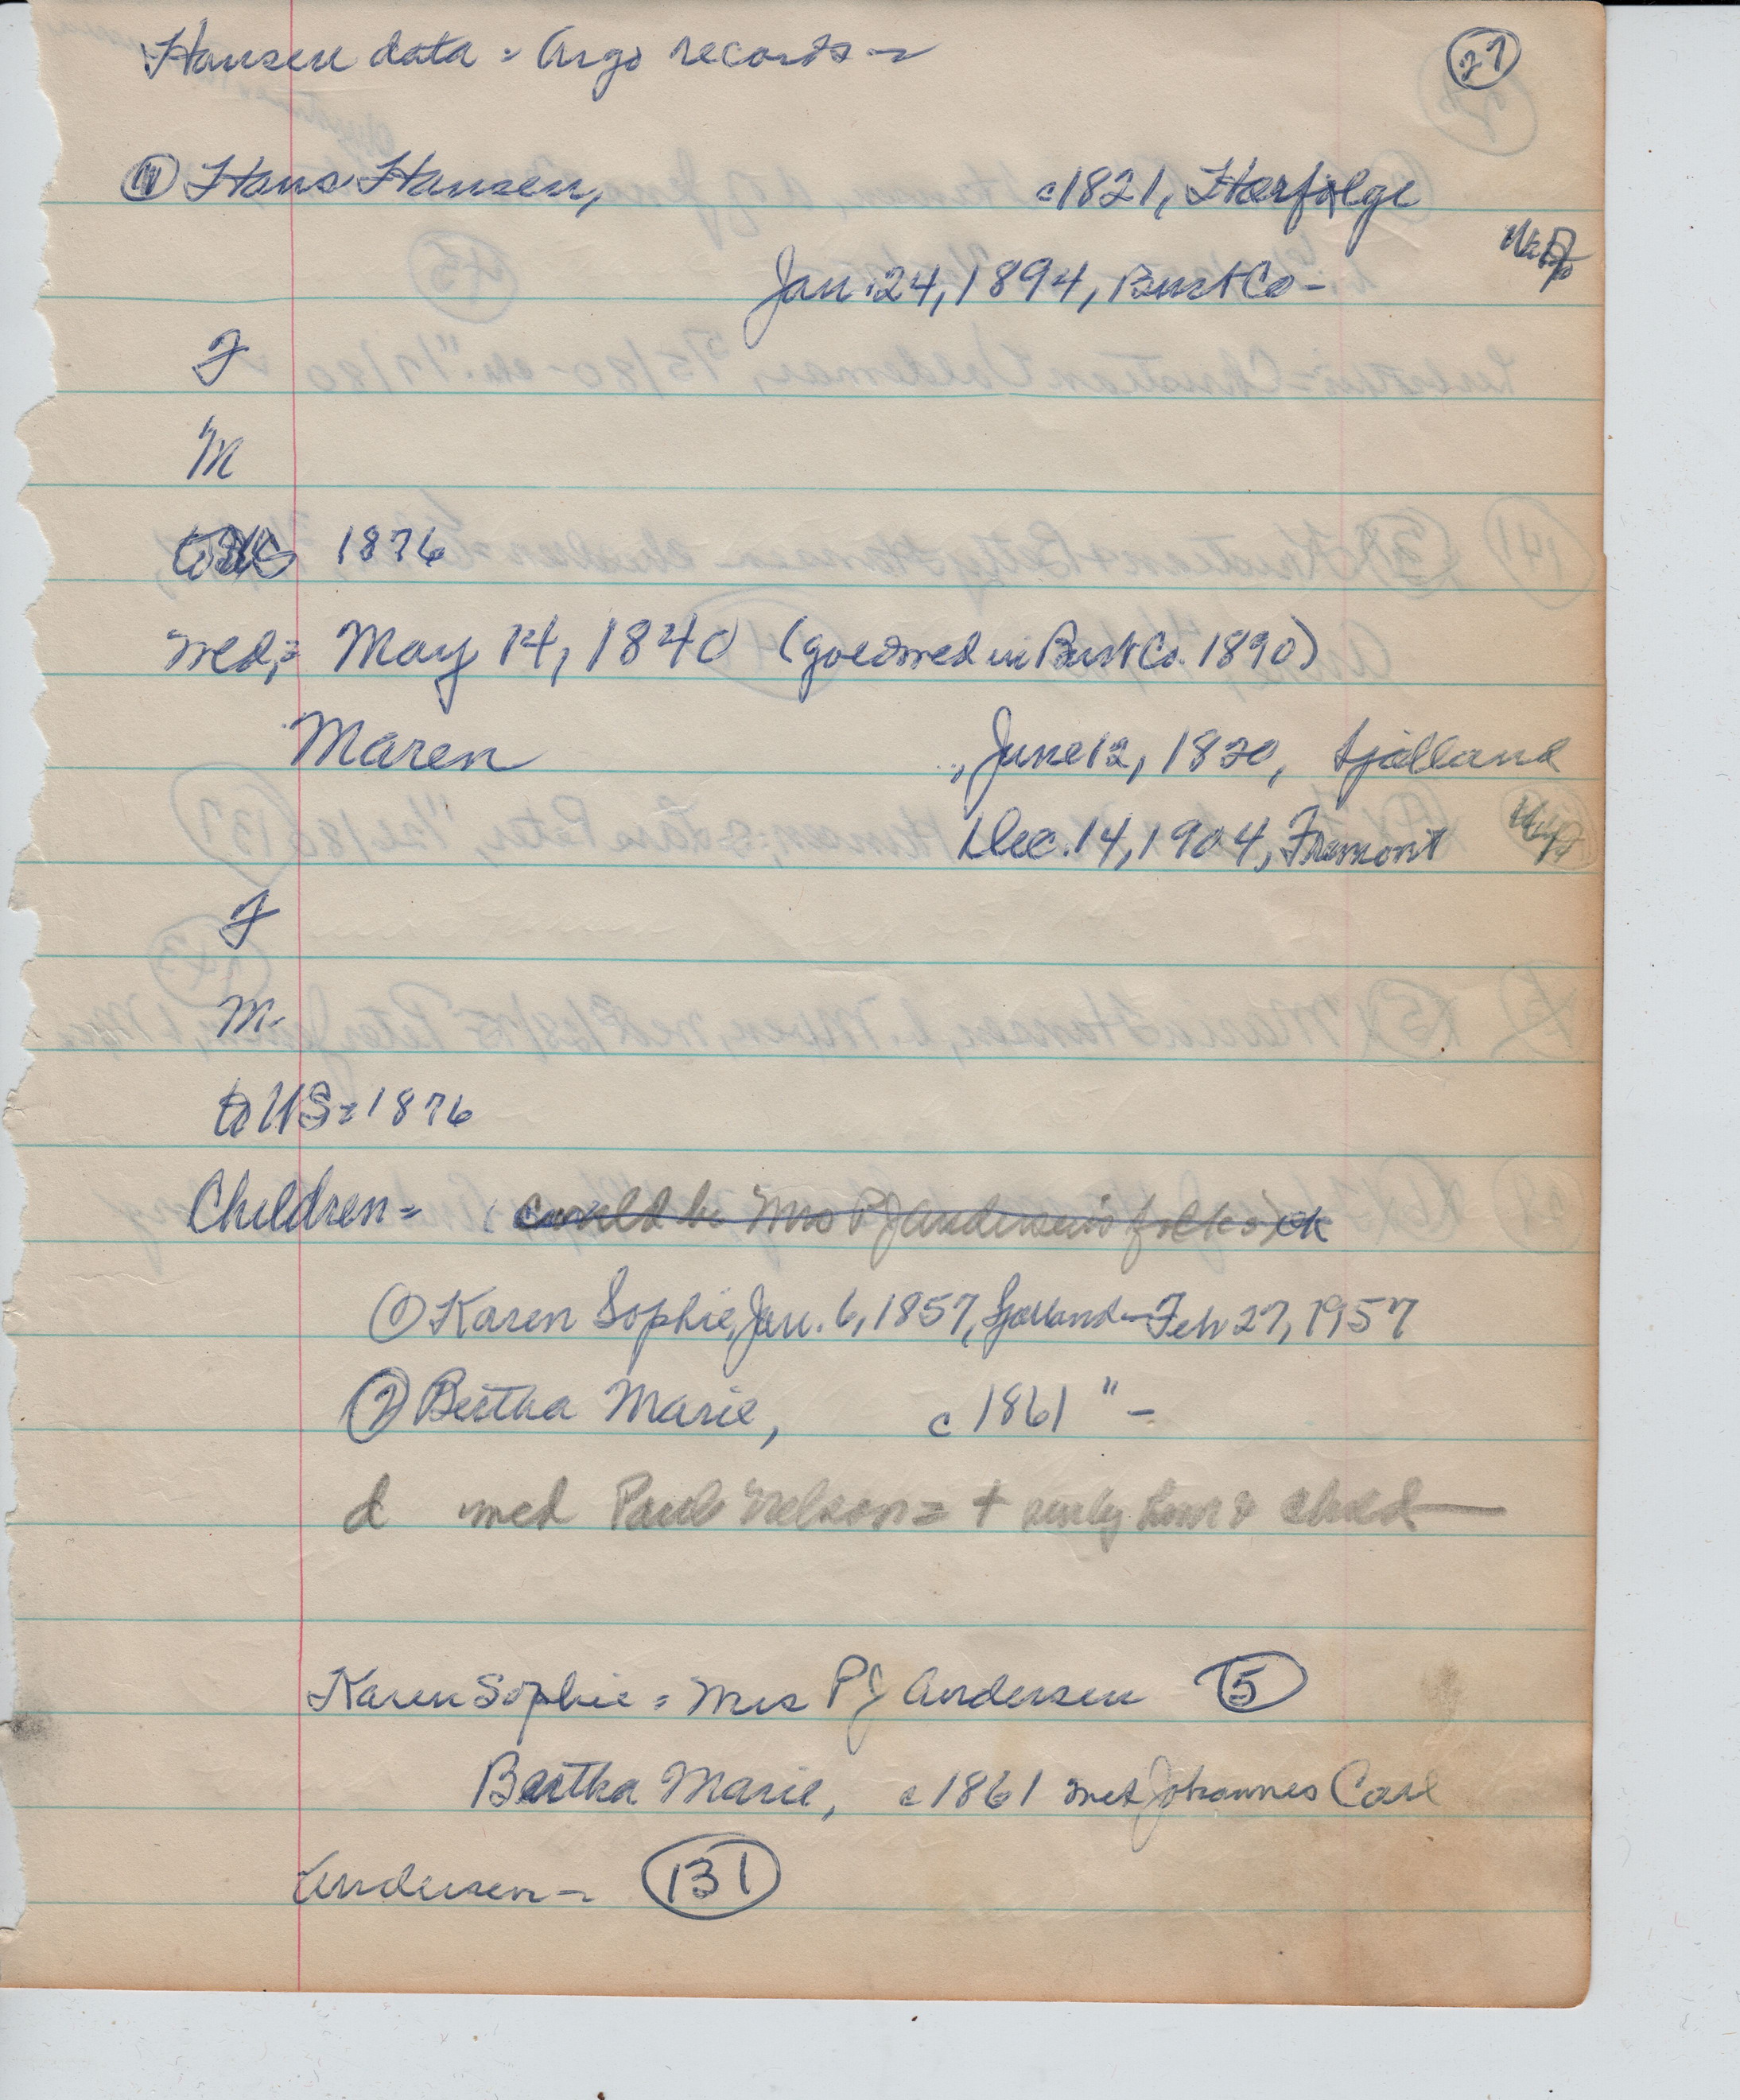 Hansen data = Argo records =
27
Hans Hansen, c1821, Herfølge
Jan. 24, 1894, Burt Co -
F
M
to US 1876
med, = May 14, 1840 (gold wed in Burt Co. 1890)
Maren , June 12, 1820, Sjælland
Dec. 14, 1904, Fremont
F
M-
to US = 1876
Children = (could be Mrs PJ Andersen's folks) ok
① Karen Sophie, Jan. 6, 1857, Sjælland - Feb 27, 1957
② Bertha Marie, c 1861 " -
d med Paul Nelson = + child
Karen Sophie = Mrs PJ Andersen ⑤
Bertha Marie, c 1861 med Johannes Carl
Andersen = 131